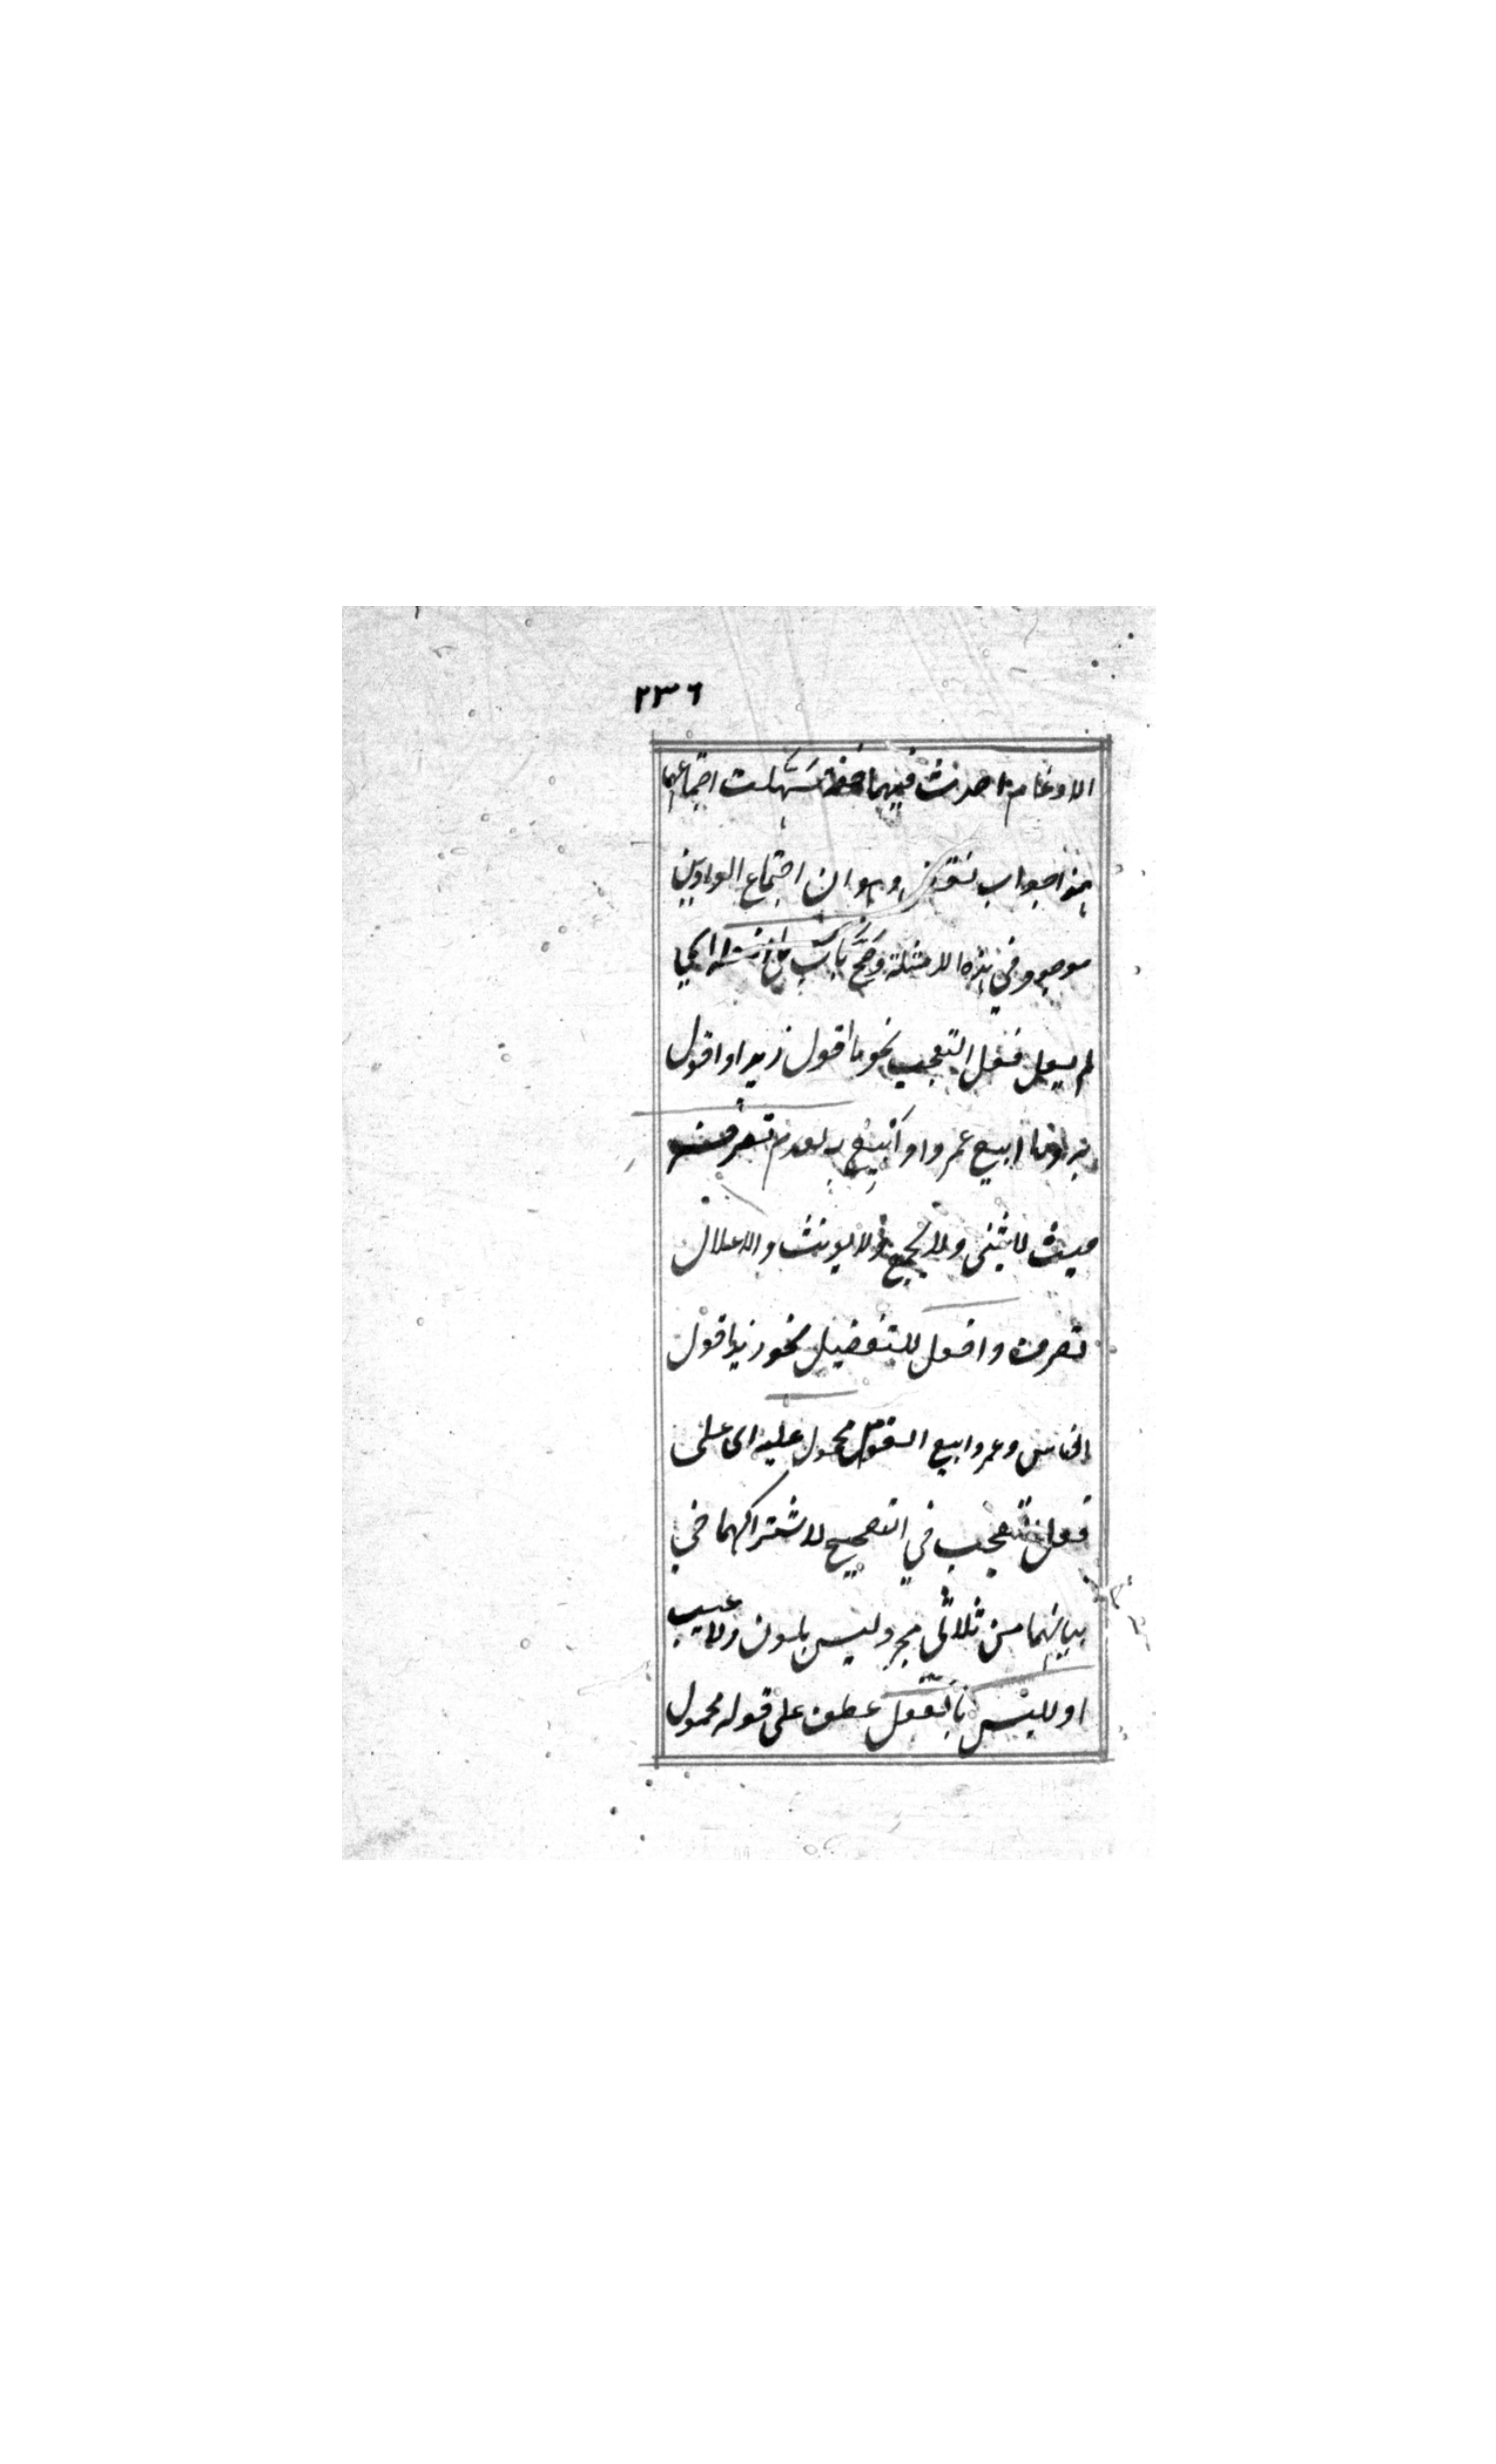 ٢٣٦
الادغام احدث فيهما خفة سهلت اجتماعهما
هذا جواب نقض وهو ان اجتماع الواوين
موجود في هذه الامثلة وصح باب ما افعله اي
لم يعل فعل التعجب نحو ما اقول زيدا واقول
به وما ابيع عمروا وابيع به لعدم تصرفه
حيث لا يثنى ولا يجمع ولا يونث والاعلال
تصرف وافعل للتفضيل نحو زيد اقول
الناس وعمرو ابيع القوم محمول عليه اى على
فعل التعجب في التصحيح لاشتراكهما في
بيانهما من ثلاثى مجرد ليس بلون ولا عيب
او للبس بالفعل عطف على قوله محمول